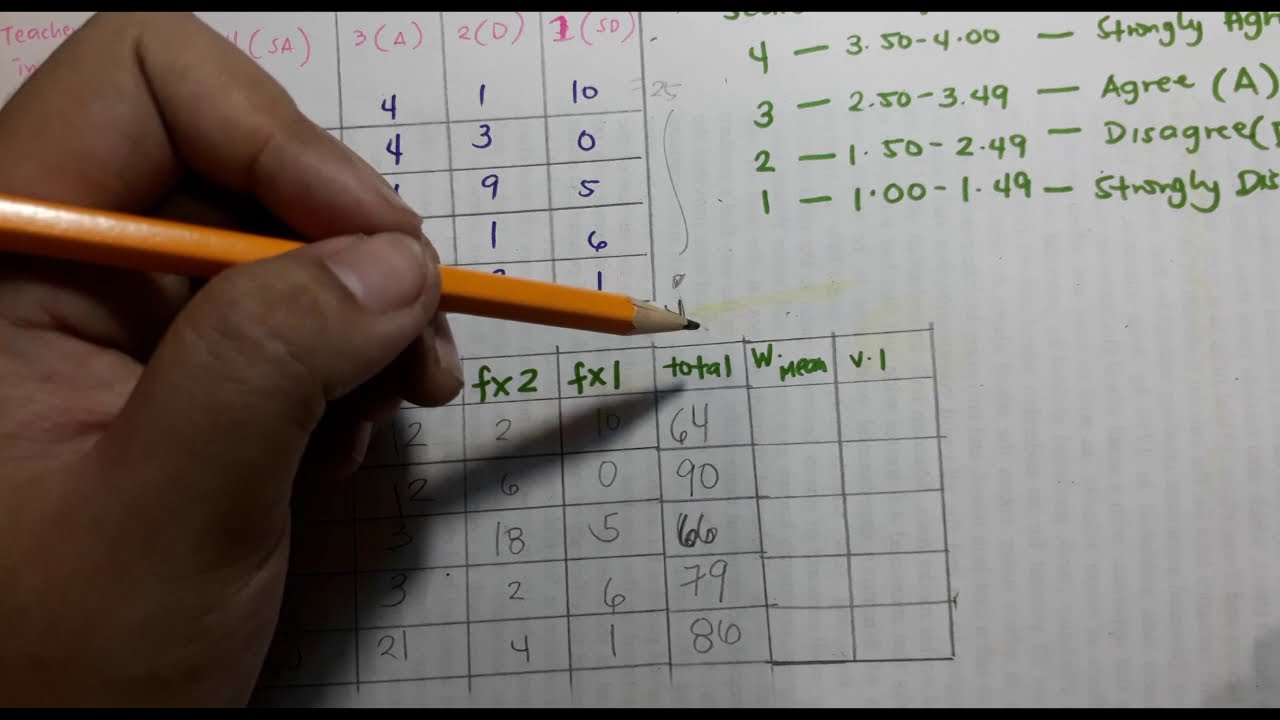 Teacher 4 (SA) 3 (A) 2 (D) 1 (SD)
in
4 1 10 = 25
4 3 0
9 5
1 6
1
4 – 3.50-4.00 – Strongly Agr
3 – 2.50-3.49 – Agree (A)
2 – 1.50-2.49 – Disagree(
1 – 1.00-1.49 – Strongly Dis
fx2 fx1 total W.Mean V.I
12 2 10 64
12 6 0 90
3 18 5 66
3 2 6 79
21 4 1 86